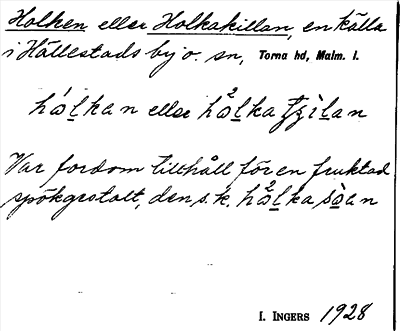 Holken eller Holkakillan, en källa
i Hällestads by o. sn, Torna hd, Malm. l.
hålkan eller hålka
Var fordom tillhåll för en fruktad
spökgestalt, den s. k. hålka
I. INGERS 1928